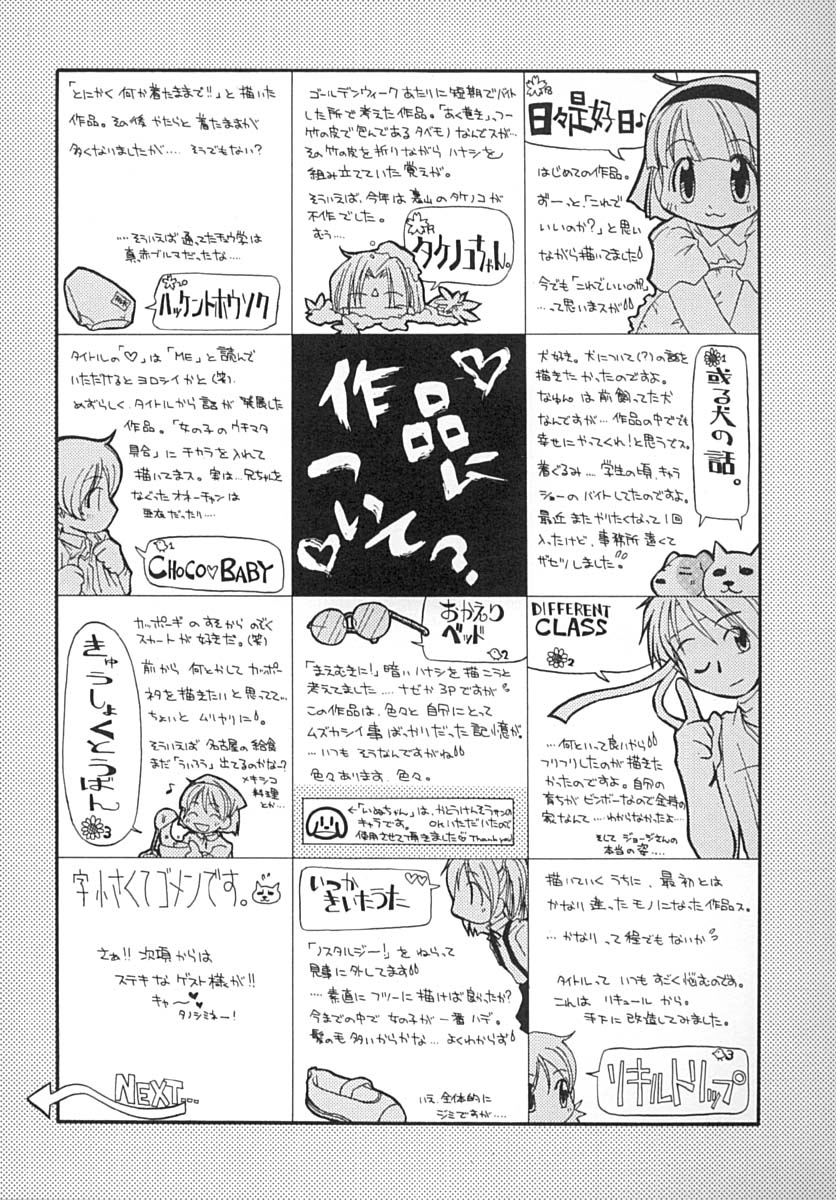 作品に
ついて?♡
日々是好日♪
はじめての作品。
ずーっと「これで
いいのか?」と思い
ながら描いてました
今でも「これでいいのか?」
…って思いまスが
ゴールデンウィークあたりに短期でバイト
した所で考えた作品。「あく巻き」、フー
竹の皮で包んであるタベモノなんでスが…
その竹の皮を折りながらハナシを
組み立てていた覚えが。
そういえば、今年は裏山のタケノコが
不作でした。
むぅ…
タケノコちゃん。
「とにかく何か着たままで!!」と描いた
作品。その後やたらと着たままが
多くなりましたが……そうでもない?
……そういえば通ってた中学は
真赤ブルマだったな……
ハッケントホウソク
1
或る犬の話。
犬好き。犬について(?)の話を
描きたかったのですよ。
なゅんは前飼ってた犬
なんですが…作品の中ででも
幸せにやってくれ!と思うでス。
着ぐるみ……学生の頃、キャラ
ショーのバイトしてたのですよ。
最近またやりたくなって1回
入ったけど、事務所遠くて
ザセツしました。
タイトルの「♡」は「ME」と読んで
いただけるとヨロシイかと(笑)
めずらしく、タイトルから話が発展した
作品。「女の子のウチマタ
具合」にチカラを入れて
描いてまス。実は…兄ちゃんを
なぐったオネーチャンは
1
CHOCO♡BABY
DIFFERENT
CLASS
2
……何といって良いやら
フリフリしたのが描きた
かったのですよ。自分の
育ちがビンボーなので金持の
家なんて……わからなかったよ…
そしてジョージさんの
本当の姿……
おかえり
ベッド
2
「まえむきに!」暗いハナシを描こうと
考えてました……ナゼか3Pですが
この作品は、色々と自分にとって
ムズカシイ事ばっかりだった記憶が。
…いつもそうなんですがね
色々あります、色々。
←「いぬちゃん」は、かとうけんそうサンの
キャラです。OKいただいたので
使用させて頂きました Thank you!
きゅうしょくとうばん
3
カッポーギのすそからのぞく
スカートが好きだ。(笑)
前から何とかしてカッポー
ネタを描きたいと思ってて…
ちょいとムリヤリに。
そういえば名古屋の給食
まだ「ういろう」出てるのかな〜?
メキシコ
料理
とか…
描いていくうちに、最初とは
かなり違ったモノになった作品ス。
…かなりって程でもないか
タイトルっていつもすごく悩むのです。
これはリキュールから。
手下に改造してみました。
3
リキルトリップ
いつか
きいたうた
♡♡
「ノスタルジー!」をねらって
見事に外してます
……素直にフツーに描けば良かったか?
今までの中で女の子が一番ハデ。
髪の毛多いからかな…よくわからず
いえ、全体的に
ジミですが……
字小さくてゴメンです。
さぁ!!次項からは
ステキなゲスト様が!!
キャ〜♥
タノシミネー!
NEXT...